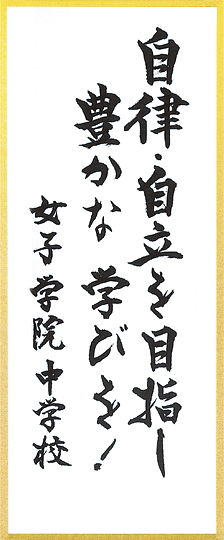 自律・自立を目指し
豊かな学びを！
女子学院中学校